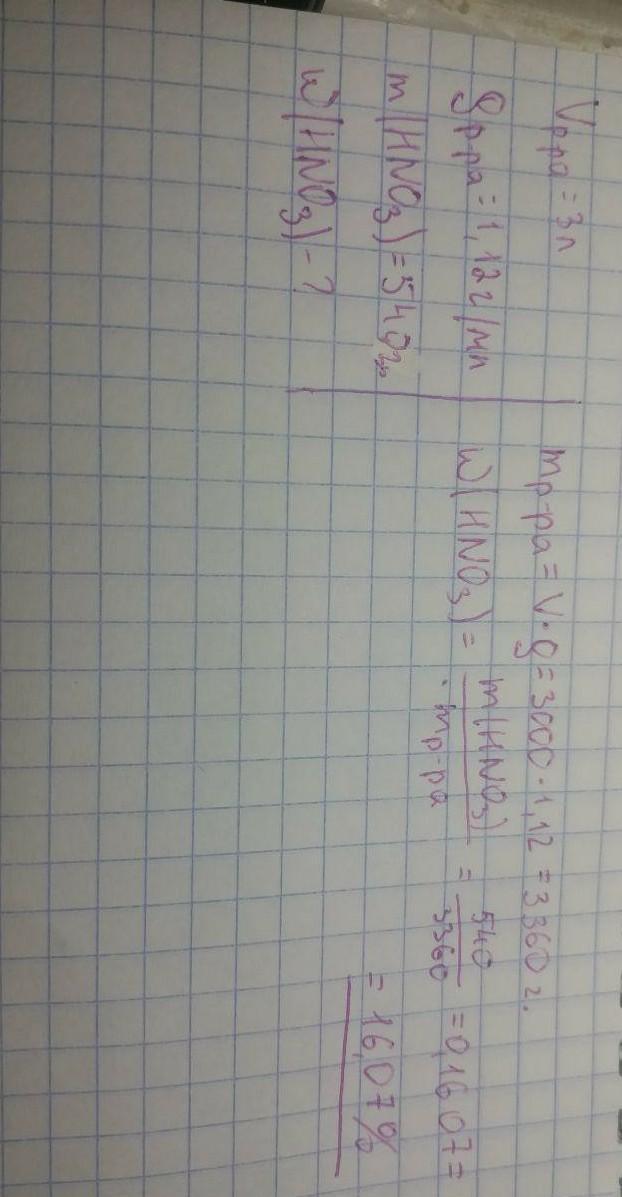 Vр-ра = 3л
ρр-ра = 1,12г/мл
m(HNO₃) = 540г
ω(HNO₃) - ?
mр-ра = V·ρ = 3000·1,12 = 3360 г.
ω(HNO₃) = m(HNO₃) / mр-ра = 540 / 3360 = 0,1607 =
= 16,07%